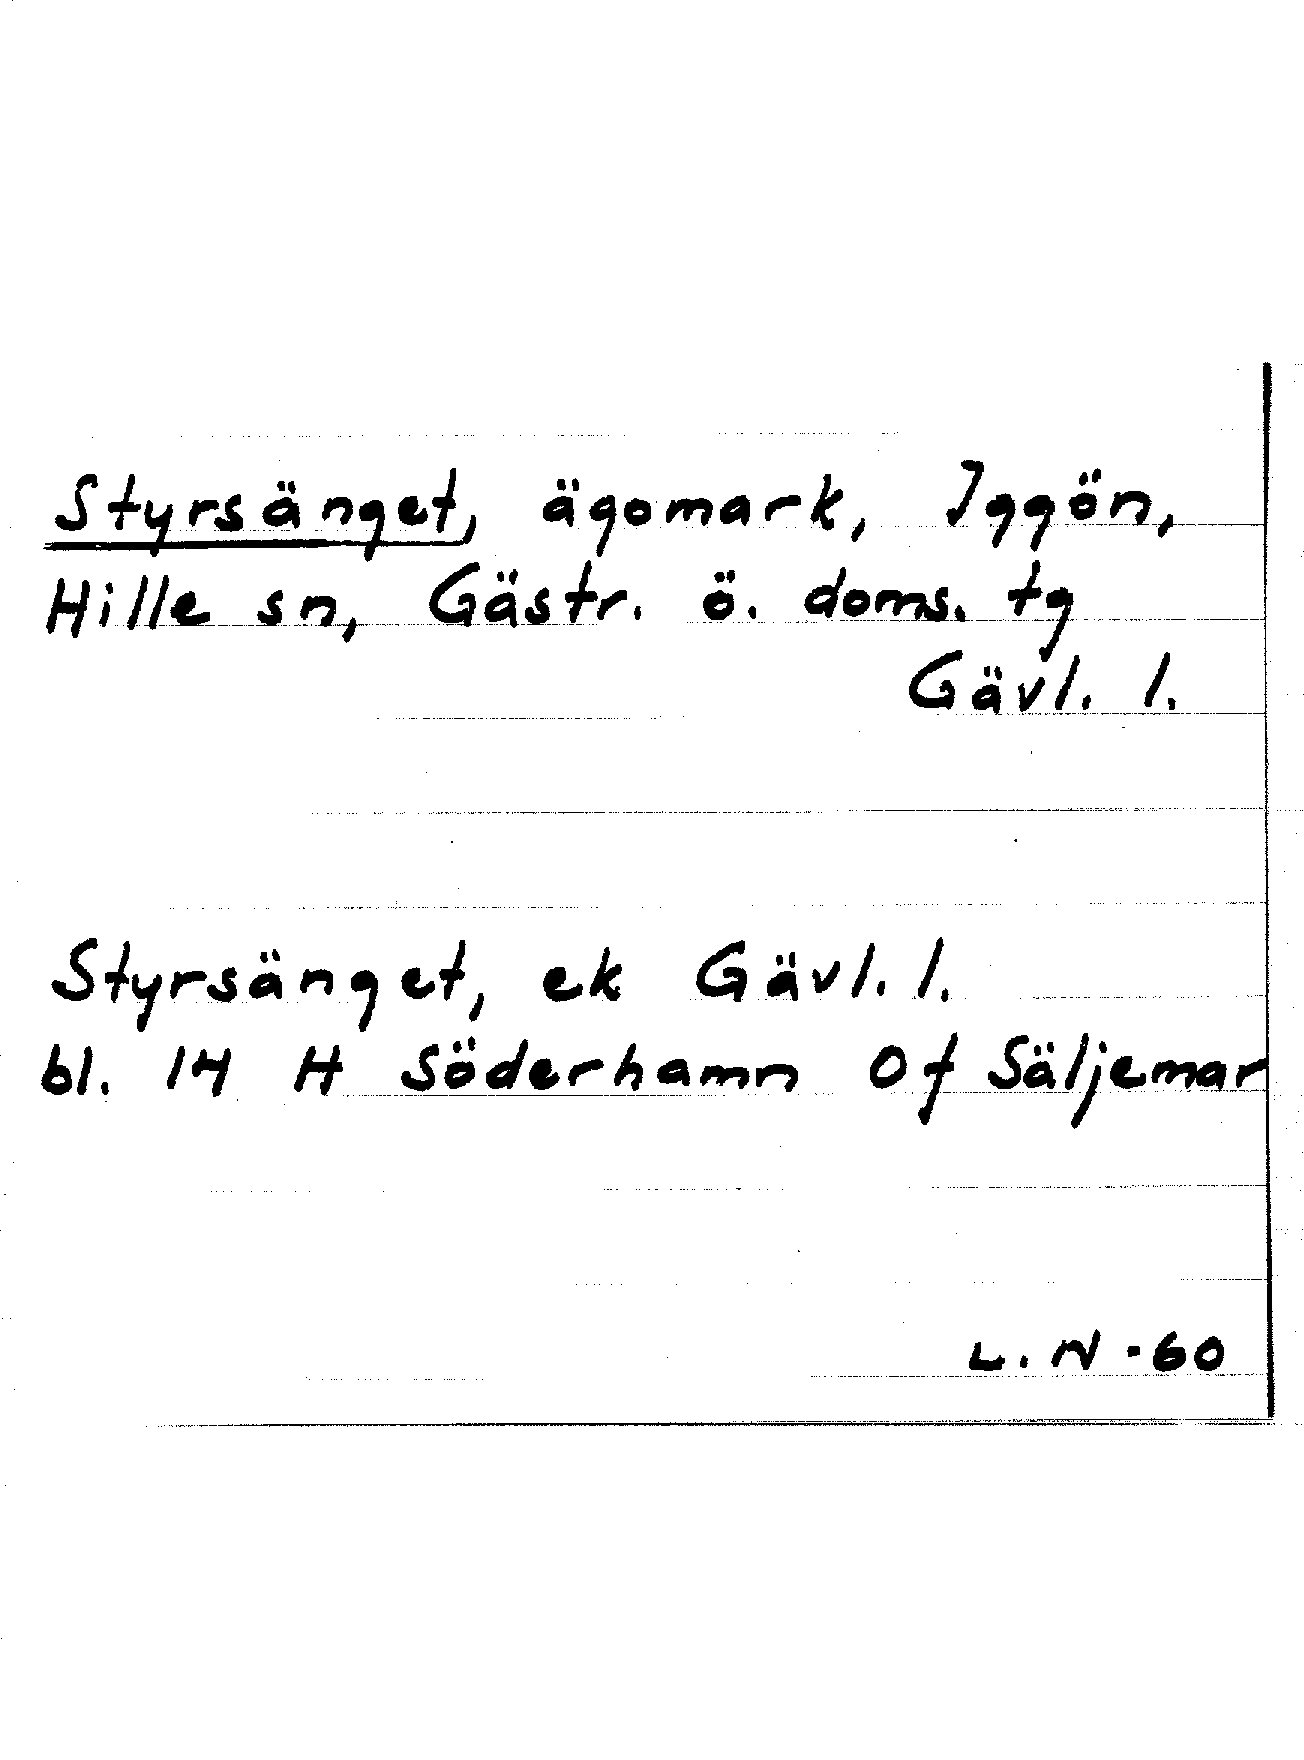 Styrsänget, ägomark, Iggön,
Hille sn, Gästr. ö. doms. tg
Gävl. l.
Styrsänget, ek Gävl. l.
bl. 14 H Söderhamn Of Säljemar
L. N -60